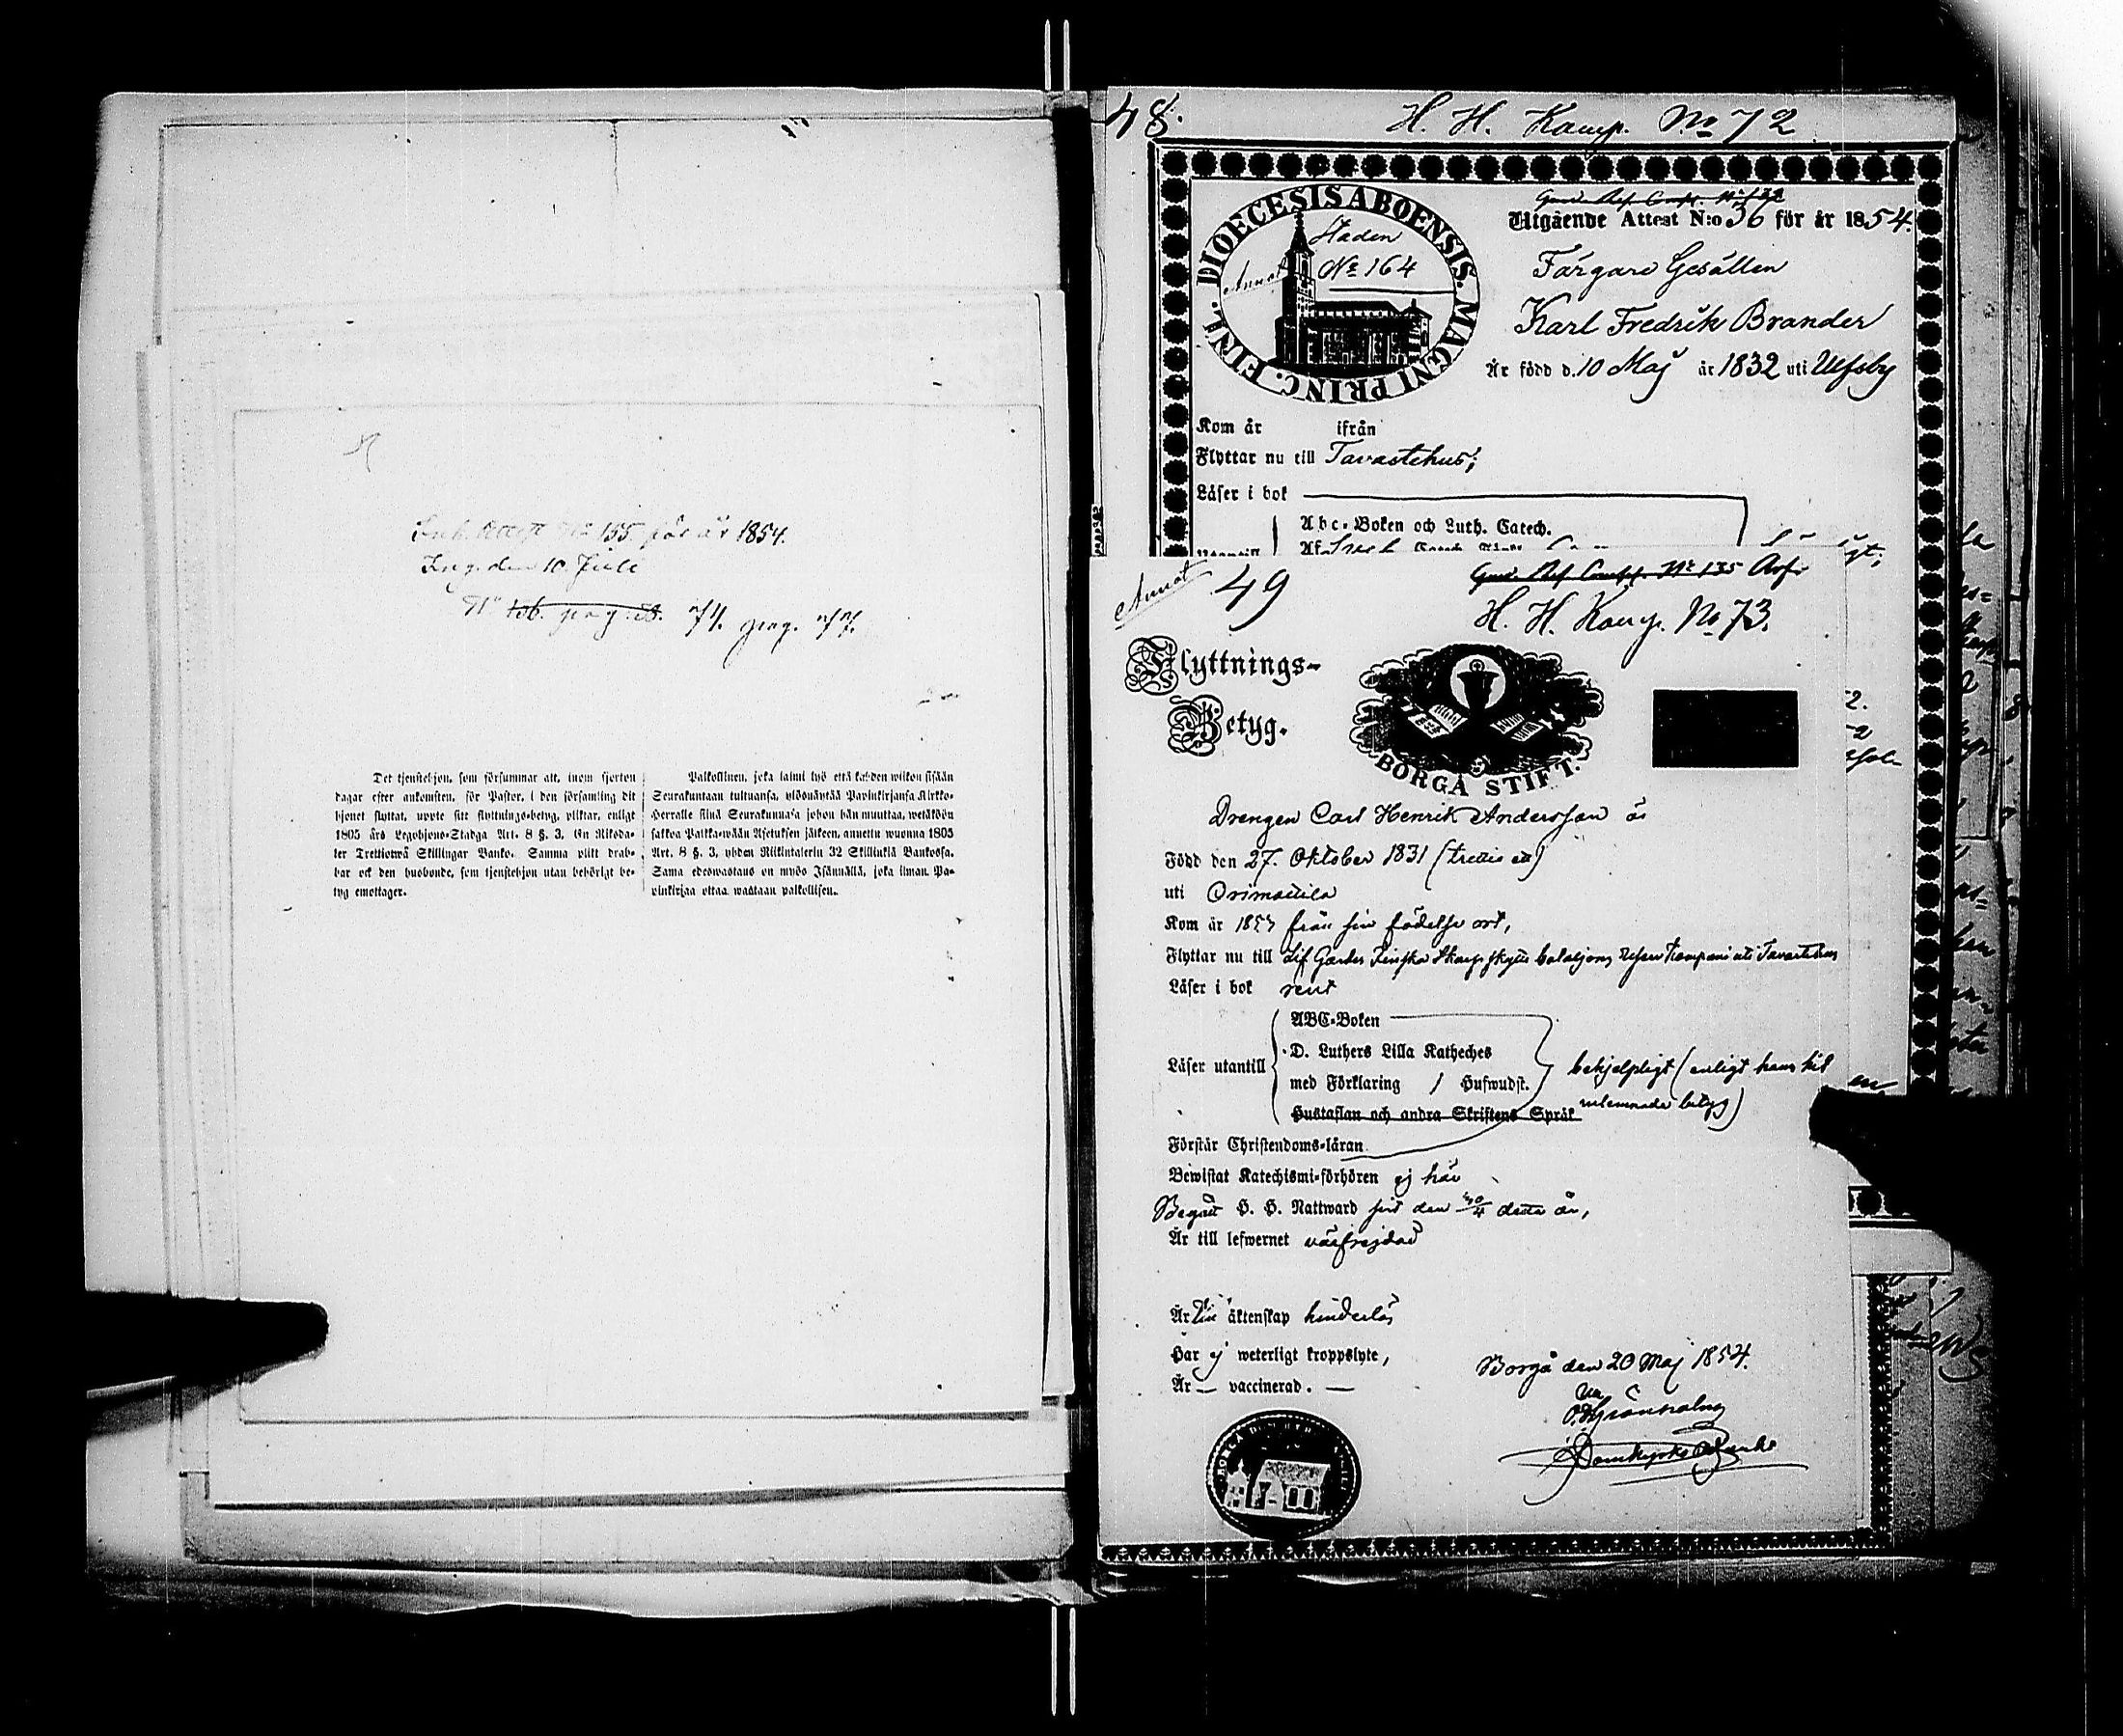 Inh. Attest No 155 för år 1854.
Ing. den 10 Juli
No 106. pag. 28. 74. pag. 77.
Det tjenstehjon, som försummar att, inom fjorton
dagar efter ankomsten, för Pastor, i den församling dit
hjonet flyttat, uppte sitt flyttnings-betyg, pliktar, enligt
1805 års Legohjons-Stadga Art. 8 §. 3, En Riksda-
ler Trettiotwå Skillingar Banko. Samma plikt drab-
bar ock den husbonde, som tjenstehjon utan behörigt be-
tyg emottager.
Palkollinen, joka laimi lyö että kahden wiikon sisään
Seurakuntaan tultuansa, ylösnäyttää Papinkirjansa Kirkko-
Herralle siinä Seurakunnasa johon hän muuttaa, wetäköön
sakkoa Palkka-wään Asetuksen jälkeen, annettu wuonna 1805
Art. 8 §. 3, yhden Riikintalerin 32 Skillinkiä Bankossa.
Sama edeswastaus on myös Isännällä, joka ilman Pa-
pinkirjaa ottaa wastaan palkollisen.
48.
H. H. Komp. No 72
DIOECESIS ABOENSIS. MAGNI PRINC. FINL.
Staden
No 164
Annot
Utgående Attest N:o 36 för år 1854.
Färgare Gesällen
Karl Fredrik Brander
Är född d. 10 Maj år 1832 uti Ulfsby
Kom år ifrån
Flyttar nu till Tavastehus;
Läser i bok
Abc-Boken och Luth. Catech.
Annot
49
No 135
H. H. Komp. No 73.
Flyttnings-
Betyg.
BORGÅ STIFT.
Drengen Carl Henrik Andersson är
Född den 27. Oktober 1831 (trettio ett)
uti Orimattila
Kom år 1853 från sin födelse ort,
Flyttar nu till Lif Gardes Finska Skarpskytte bataljons Reserv Kompani uti Tavastehus
Läser i bok rent
Läser utantill
ABC-Boken
D. Luthers Lilla Katheches
med Förklaring / Hufwudst.
Hustaflan och andra Skriftens Språk
behjelpligt (enligt hans hit
inlemnade betyg)
Förstår Christendoms-läran
Bewistat Katechismi-förhören ej här
Begått H. H. Nattward sist den 30/4 detta år,
Är till lefwernet välfrejdad
Är till äktenskap hinderlös
Har ej weterligt kroppslyte,
Är — vaccinerad. —
Borgå den 20 Maj 1854.